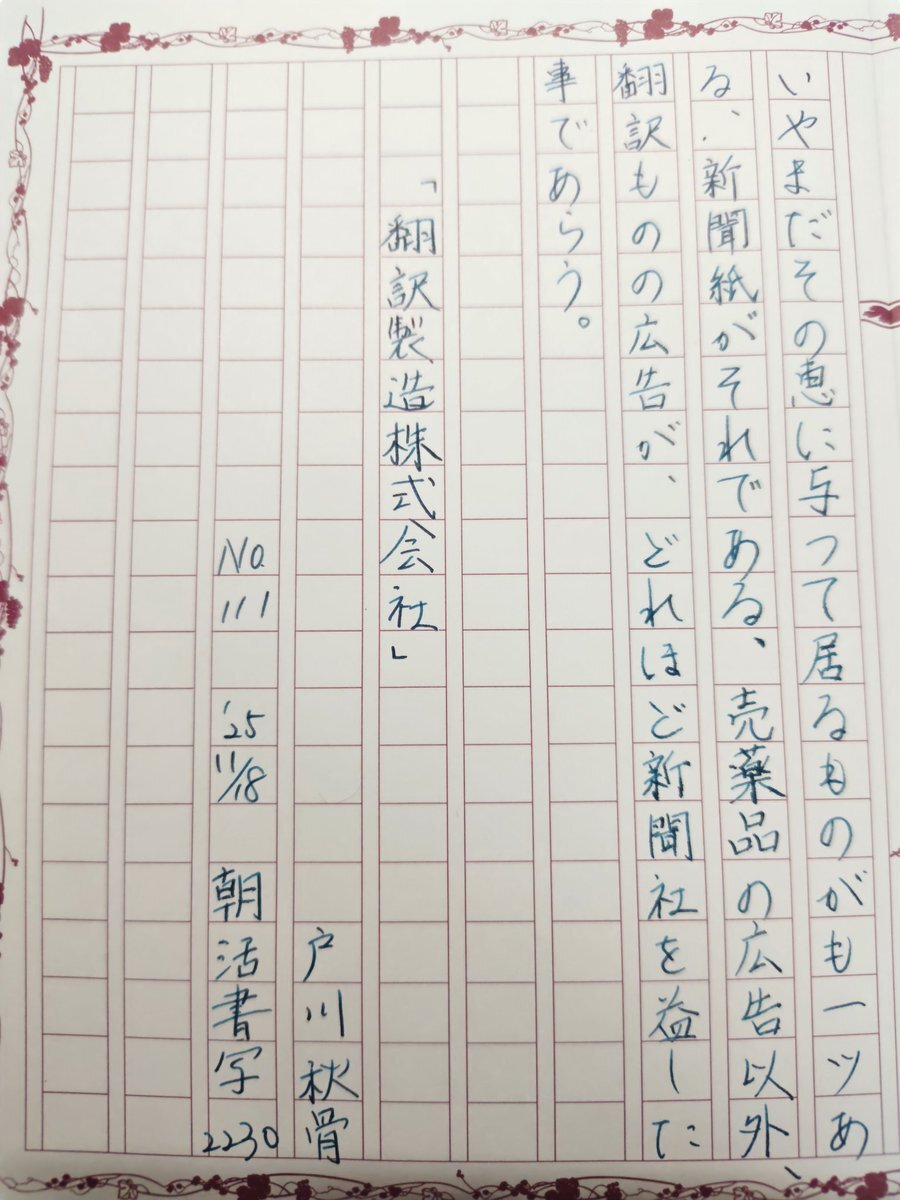 いやまだその恵に与つて居るものがも一ツあ
る、新聞紙がそれである、売薬品の広告以外、
翻訳ものの広告が、どれほど新聞社を益した
事であらう。
「翻訳製造株式会社」
戸川秋骨
No. 111 '25 11/18 朝活書写 2230